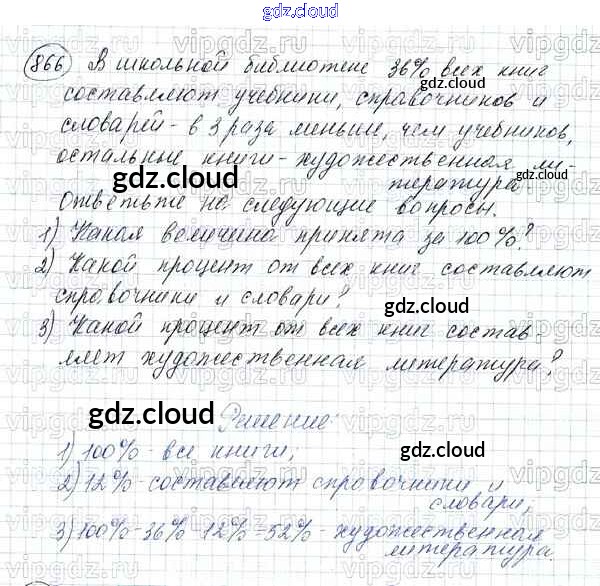 gdz.cloud
866 В школьной библиотеке 36% всех книг
составляют учебники, справочников и
словарей - в 3 раза меньше, чем учебников,
остальные книги - художественная ли-
тература.
Ответьте на следующие вопросы.
1) Какая величина принята за 100%?
2) Какой процент от всех книг составляют
справочники и словари?
3) Какой процент от всех книг состав-
ляет художественная литература?
Решение:
1) 100% - все книги;
2) 12% - составляют справочники и
словари;
3) 100% - 36% - 12% = 52% - художественная
литература.
gdz.cloud
gdz.cloud
gdz.cloud
gdz.cloud
gdz.cloud
gdz.cloud
gdz.cloud